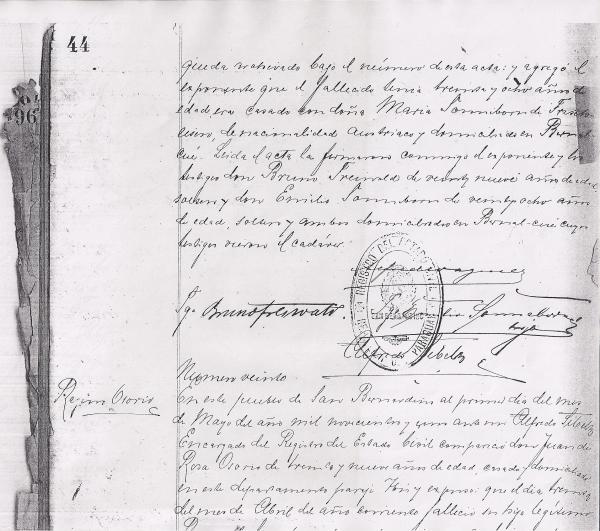 44
96
queda archivado bajo el número de esta acta: y agregó el
exponente que el fallecido tenia treinta y ocho años de
edad era casado con doña Maria Sonniborn de
de nacionalidad Austriaco y domiciliado en Bernal
cué. Leida el acta la firmaron conmigo el exponente y los
testigos don Bruno de veinte nueve años de edad,
soltero y don Emilio Sonniborn de veinte y ocho años
de edad, soltero y ambos domiciliados en Bernal-cué cuyos
testigos vieron el cadáver.
REGISTRO DEL ESTADO CIVIL
PARAGUAY
Tgo Bruno
Sonniborn
Alfredo
Numero veinte
Regina Osorio
En este pueblo de San Bernardino al primer dia del mes
de Mayo del año mil novecientos y uno ante mi Alfredo
Encargado del Registro del Estado Civil compareció don Juan de
Rosa Osorio de treinta y nueve años de edad, casado, domiciliado
en este departamento paraje y expuso: que el dia treinta
del mes de Abril del año corriente falleció su hijo legitimo